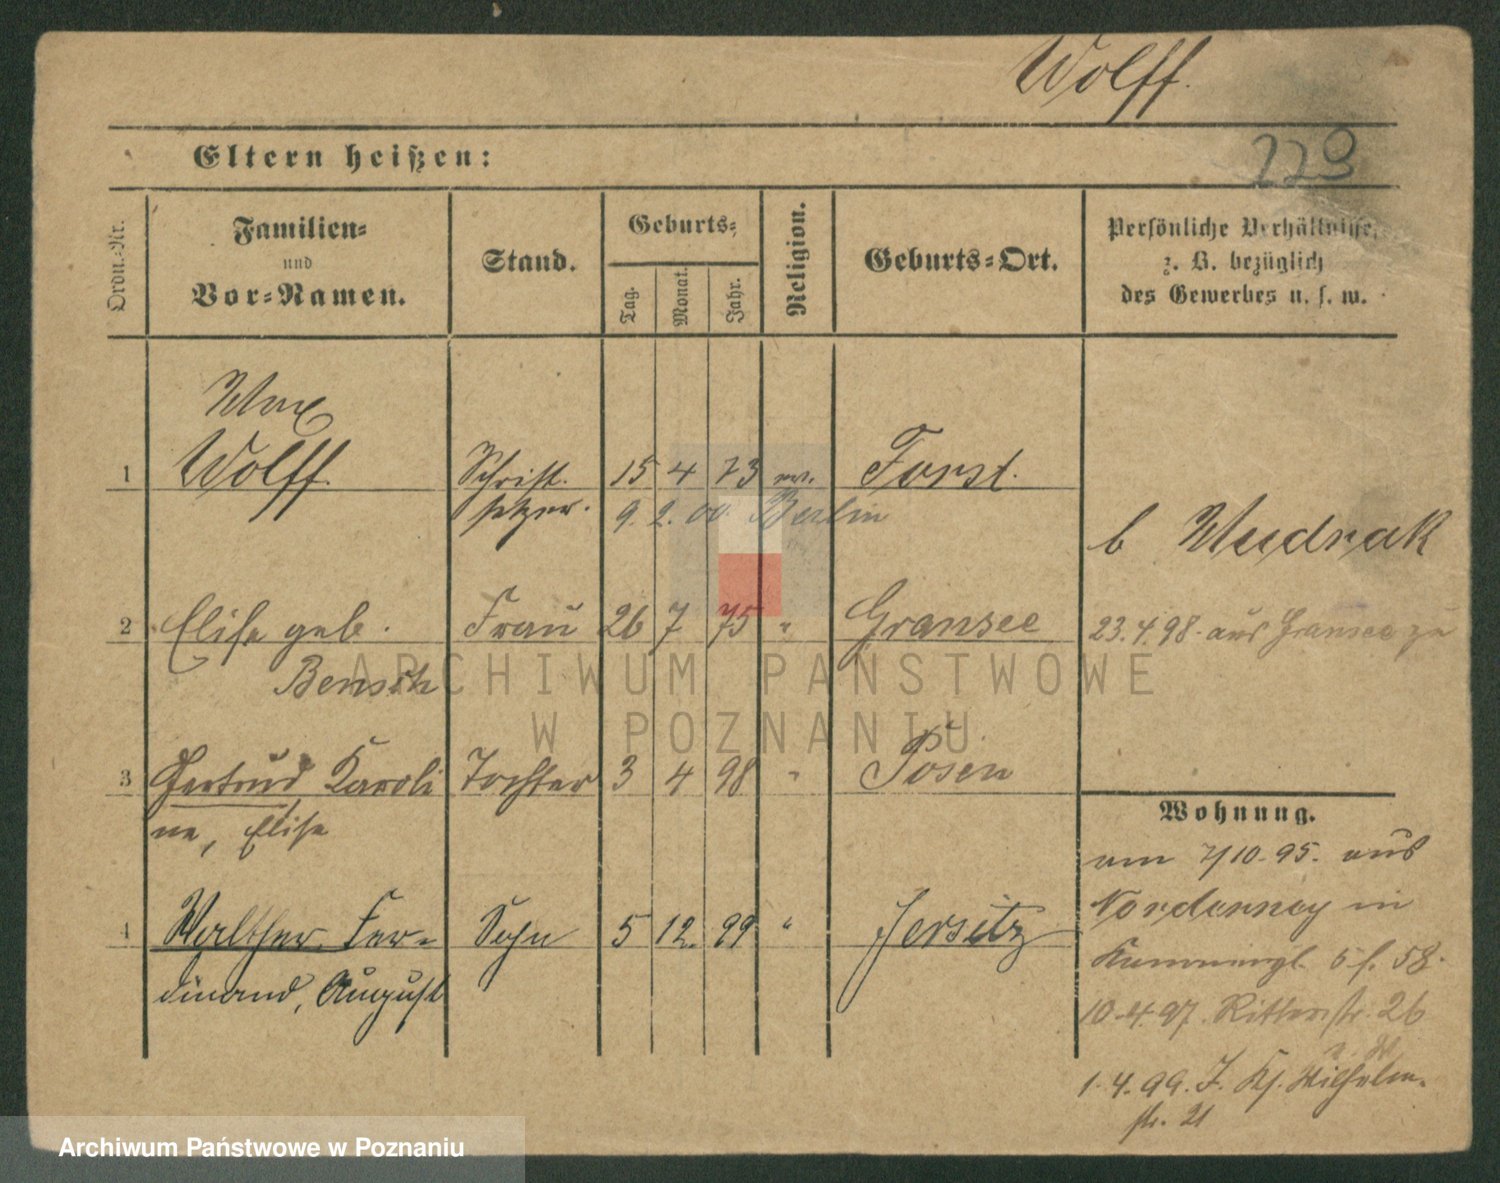 Wolff.
Eltern heißen:
229
Ordn.-Nr.
Familien-
und
Vor-Namen.
Stand.
Geburts-
Tag.
Monat.
Jahr.
Religion.
Geburts-Ort.
Persönliche Verhältnisse,
z. B. bezüglich
des Gewerbes u. s. w.
Max
1 Wolff. Schrift- 15 4 73 ev. Forst.
setzer. 9. 2. 00. Berlin
b Mudrak
2 Elise geb. Frau 26 7 75 " Gransee
Bensch
23.4.98. aus Gransee zu
3 Gertrud Karoli Tochter 3 4 98 " Posen
ne, Elise
Wohnung.
am 7/10.95. aus
4 Walther Fer- Sohn 5 12. 99 " Jersitz
dinand, August
Norderney in
5 f. 58.
10.4.97. Ritterstr. 26
1.4.99. J. Ks. Wilhelm-
str. 21
ARCHIWUM PAŃSTWOWE
W POZNANIU
Archiwum Państwowe w Poznaniu